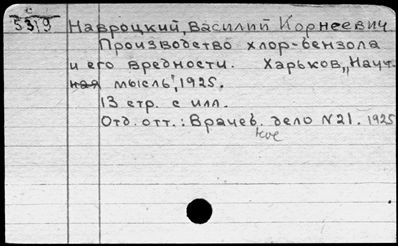 с
5319
Навроцкий, Василий Корнеевич
Производство хлор-бензола
и его вредности. Харьков, „Науч
ная мысль", 1925.
13 стр. с илл.
Отд. отт.: Врачев. дело №21. 1925
ное